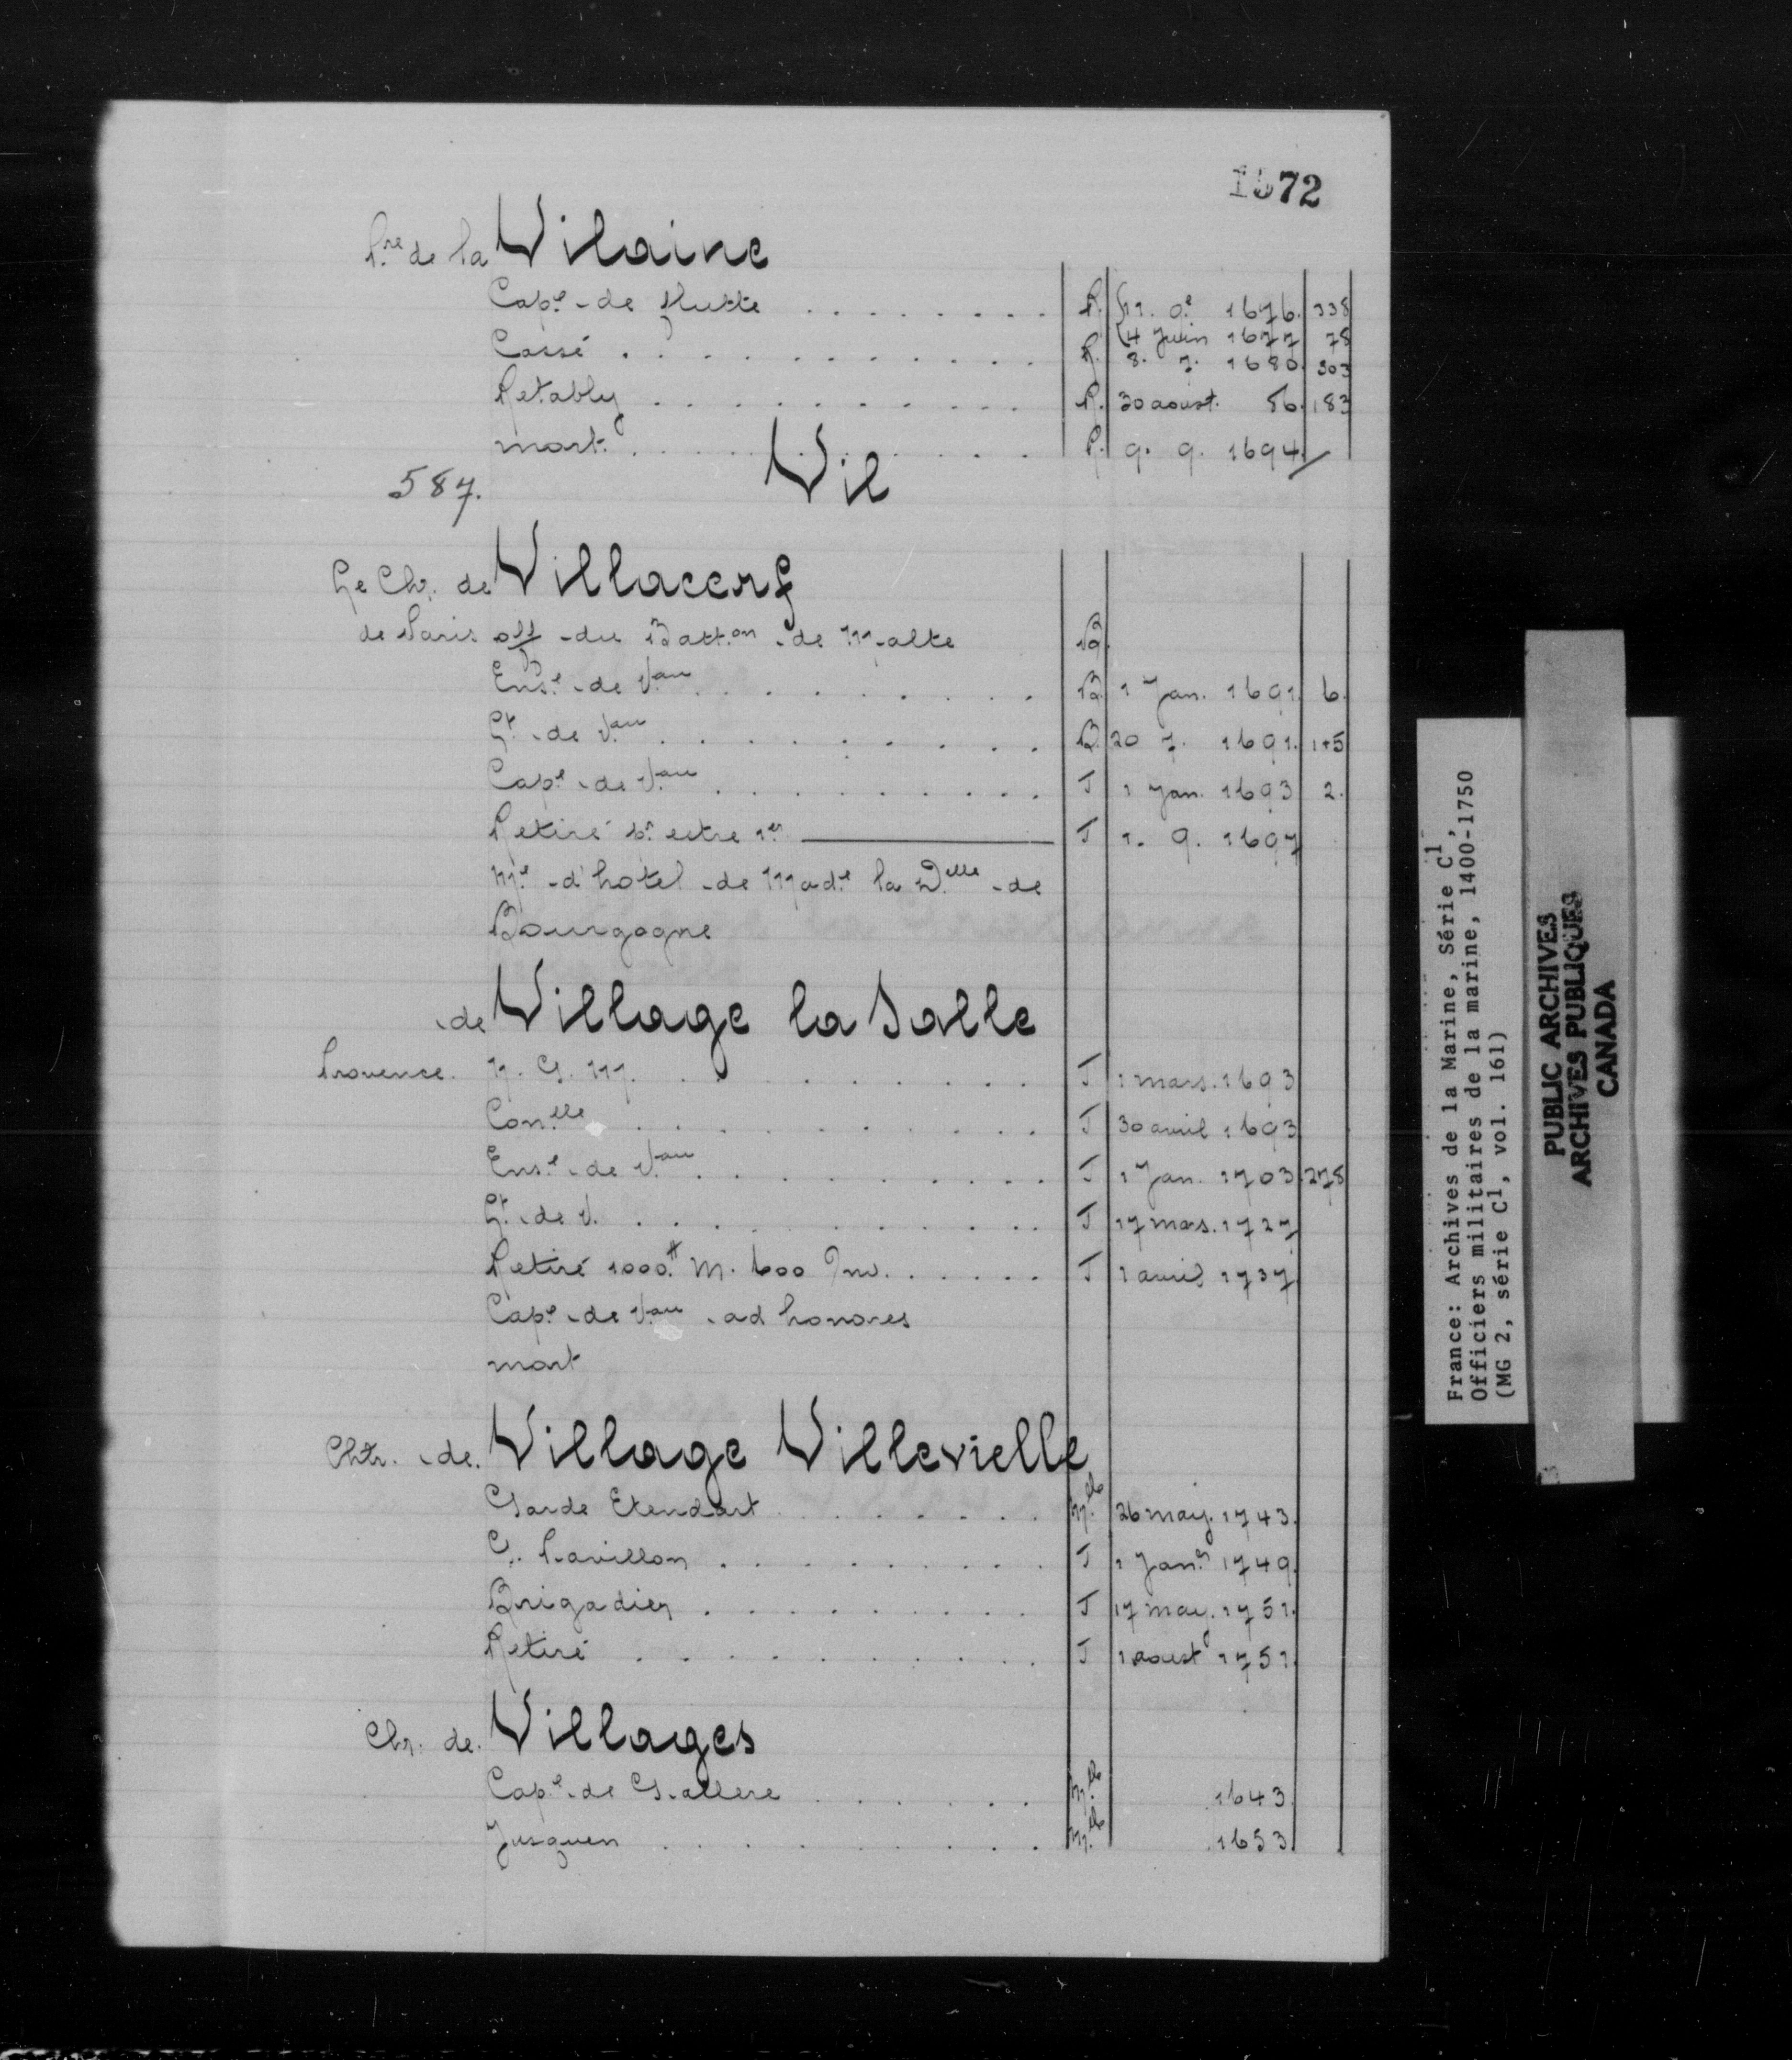 1572
P.re de la Vilaine
Cap.e de flutte . . . . . . . R. 11. 0.e 1676. 338
4 Juin 1677 78
Cassé . . . . . . . . . . . R. 8. 7. 1680. 303
Retably . . . . . . . . . . R. 30 aoust. 86. 183
mort. . . . . . . . . . . R. 9. 9. 1694
587. Vil
Le Chr. de Villacerf
de Paris off du Batt.on de Malte B.
Ens.e de V.au . . . . . . . . . B. 1 Jan. 1691. 6.
Lt. de V.au . . . . . . . . . . B. 20 7. 1691. 145
Cap.e de V.au . . . . . . . . . T 1 Jan. 1693 2.
Retiré pr. estre 1er T 1. 9. 1697
M.e d'hotel de Mad.e la D.elle de
Bourgogne
de Village la Salle
Provence. N. G. M. . . . . . . . . . . T 1 mars. 1693
Con.elle . . . . . . . . . . . T 30 avril 1693
Ens.e de V.au . . . . . . . . . T 1 Jan. 1703. 278
Lt. de V. . . . . . . . . . . . T 17 mars. 1727
Retiré 1000.# M. 600 Inv. . . . . . T 1 avril 1737.
Cap.e de V.au ad honores
mort
Chtr. de. Village Villevielle
Garde Etendart . . . . . . . M.lle 26 may. 1743.
G. Pavillon . . . . . . . . . T 1 Jan.r 1749.
Brigadier . . . . . . . . . T 17 may. 1751.
Retiré . . . . . . . . . . . T 1 aoust 1751.
Chr. de. Villages
Cap.e de Gallere . . . . . . M.lle 1643.
Jusquen . . . . . . . . . . M.lle 1653.
France: Archives de la Marine, Série C1,
Officiers militaires de la marine, 1400-1750
(MG 2, série C1, vol. 161)
PUBLIC ARCHIVES
ARCHIVES PUBLIQUES
CANADA